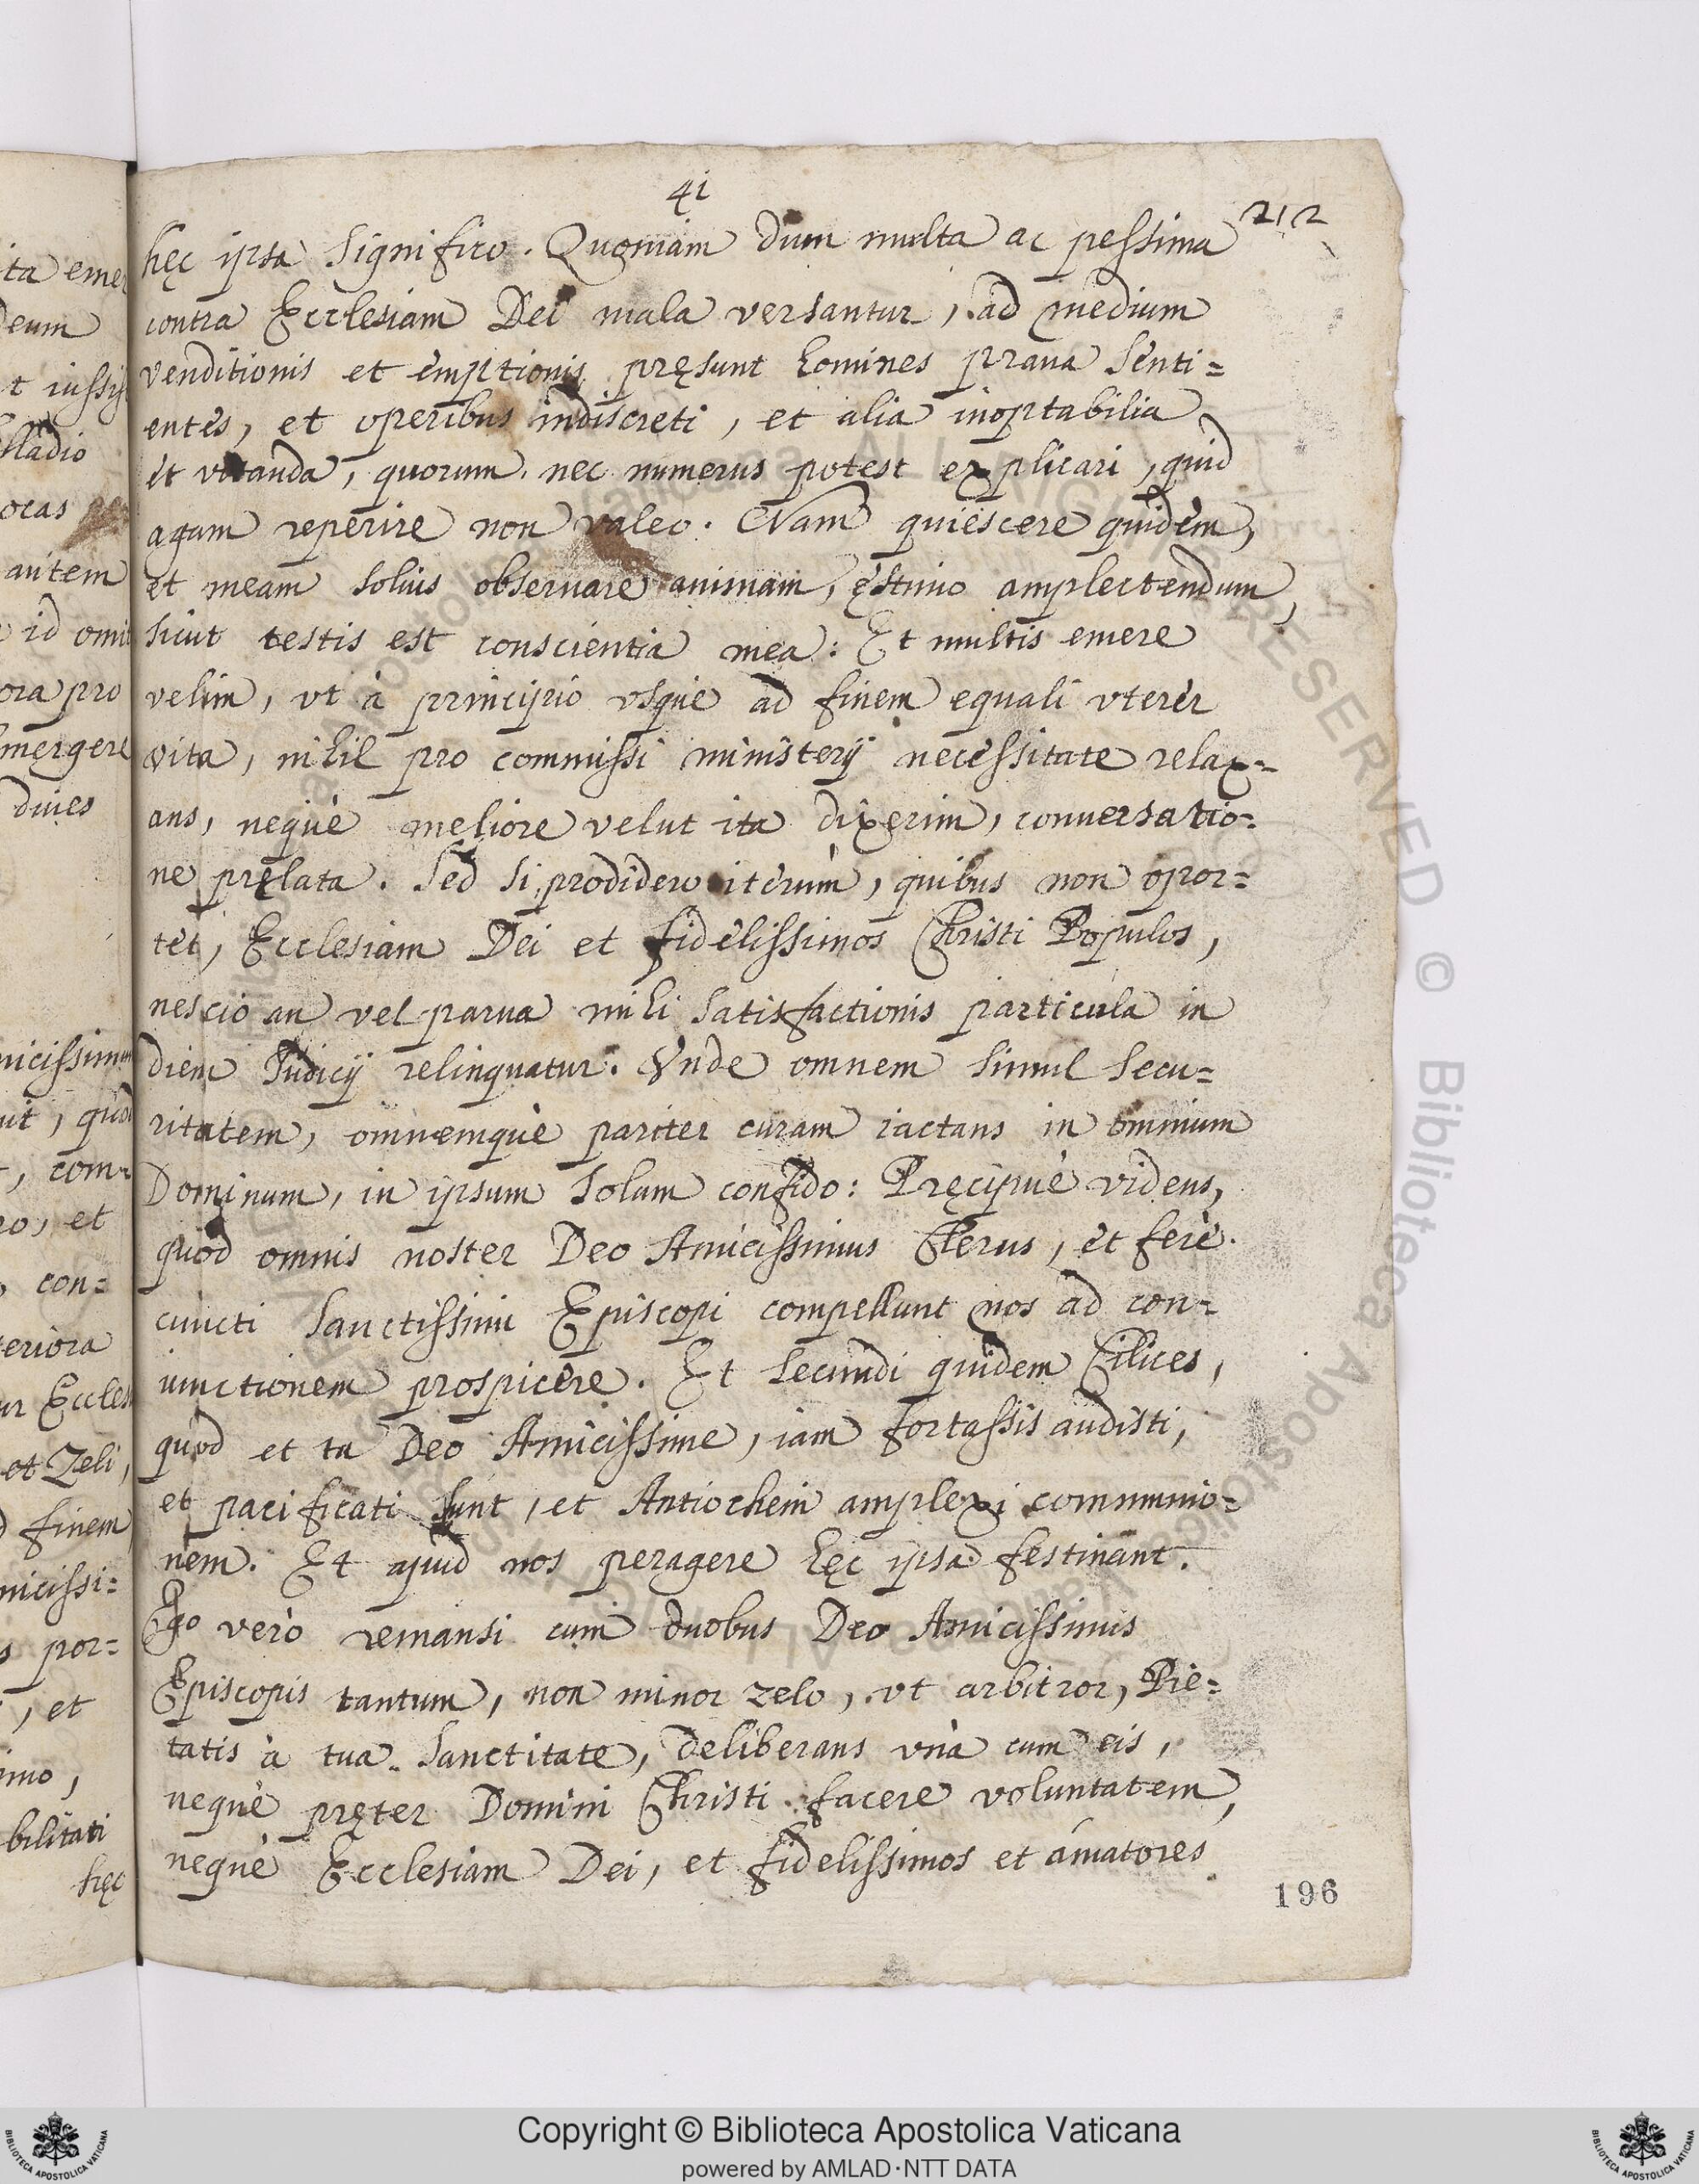 41
212
hęc ipsa significo. Quoniam dum multa ac pessima
contra Ecclesiam Dei mala versantur, ad medium
venditionis et emptionis pręsunt homines praua senti=
entes, et operibus indiscreti, et alia inoptabilia
et vitanda, quorum nec numerus potest explicari, quid
agam reperire non valeo. Nam quiescere quidem,
et meam solius obseruare animam, ęstimo amplectendum,
sicut testis est conscientia mea: Et multis emere
velim, vt à principio vsque ad finem equali vterer
vita, nihil pro commissi ministerij necessitate relax=
ans, nequè meliore velut ita dixerim, conuersatio=
ne pręlata. Sed si prodidero iterùm, quibus non opor=
tet, Ecclesiam Dei et fidelissimos Christi Populos,
nescio an vel parua mihi satisfactionis particula in
diem Judicij relinquatur. Vnde omnem simul secu=
ritatem, omnemquè pariter curam iactans in omnium
Dominum, in ipsum solum confido: Pręcipuè videns,
quòd omnis noster Deo Amicissimus Clerus, et ferè
cuncti Sanctissimi Episcopi compellunt nos ad con=
iunctionem prospicere. Et secundi quidem Cilices,
quod et tu Deo Amicissime, iam fortassis audisti,
et pacificati sunt, et Antiochem amplexi communio=
nem. Et apud nos peragere hęc ipsa festinant.
Ego verò remansi cum duobus Deo Amicissimis
Episcopis tantum, non minor zelo, vt arbitror, Pie=
tatis à tua Sanctitate, deliberans vnà cum eis,
nequè pręter Domini Christi facere voluntatem,
nequè Ecclesiam Dei, et fidelissimos et amatores
196
ita emer
deum
t iussis
ocas
autem
id omit
ora pro
mergere
diues
micissim
ut, quod
, com=
ro, et
, con=
teriora
ur Eccles
et Zeli,
finem
micissi=
s por=
, et
imo,
bilitati
hęc
Copyright © Biblioteca Apostolica Vaticana
powered by AMLAD·NTT DATA